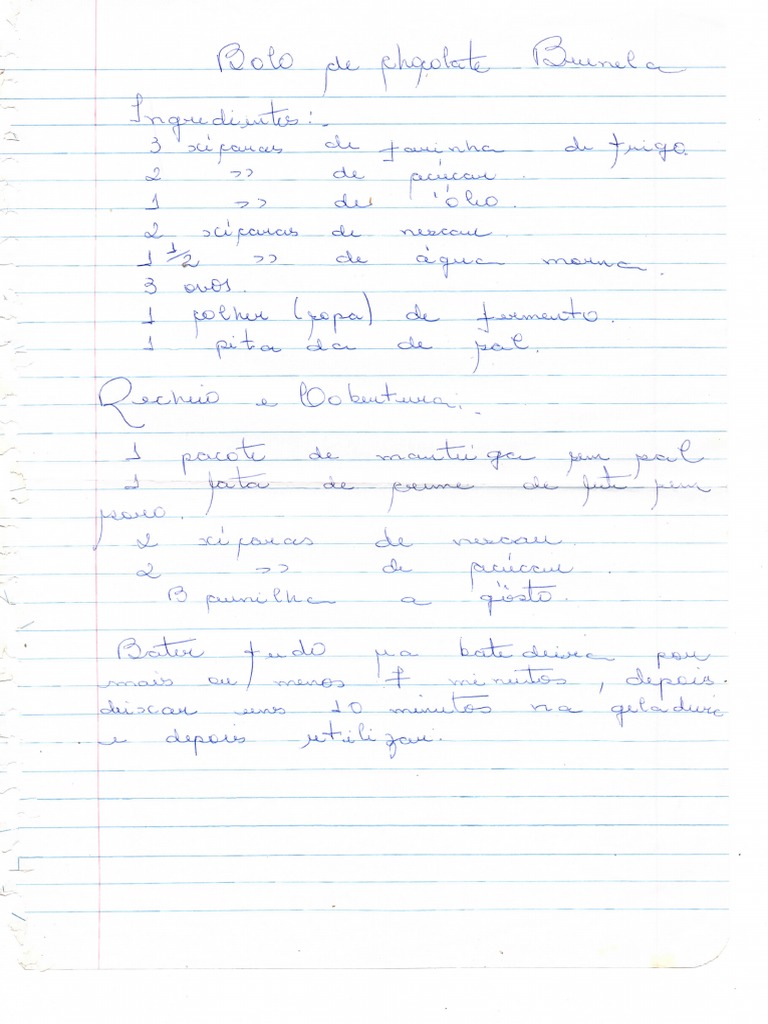 Bolo de chocolate Brunela
Ingredientes:
3 xícaras de farinha de trigo.
2 >> de açúcar.
1 >> de óleo.
2 xícaras de nescau.
1 1/2 >> de água morna.
3 ovos.
1 colher (sopa) de fermento.
1 pitada de sal.
Recheio e Cobertura:
1 pacote de manteiga sem sal
1 lata de creme de leite sem
soro.
2 xícaras de nescau.
2 >> de açúcar.
Baunilha a gosto.
Bater tudo na batedeira por
mais ou menos 7 minutos, depois
deixar uns 10 minutos na geladeira
e depois utilizar.